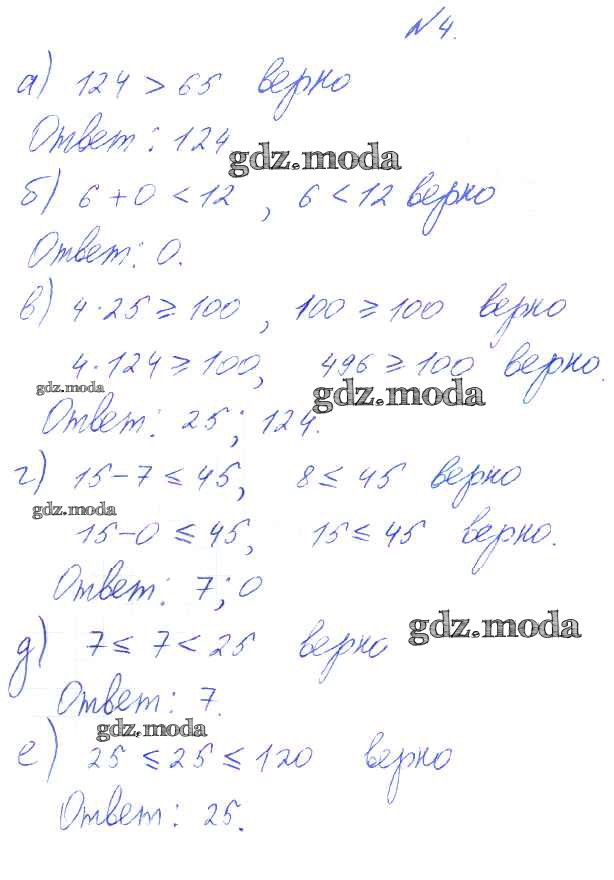 №4.
а) 124 > 65 верно
Ответ: 124
gdz.moda
б) 6 + 0 < 12 , 6 < 12 верно
Ответ: 0.
в) 4·25 ⩾ 100 , 100 ⩾ 100 верно
4·124 ⩾ 100, 496 ⩾ 100 верно.
gdz.moda gdz.moda
Ответ: 25; 124.
г) 15 – 7 ⩽ 45, 8 ⩽ 45 верно
gdz.moda
15 – 0 ⩽ 45, 15 ⩽ 45 верно.
Ответ: 7; 0
gdz.moda
д) 7 ⩽ 7 < 25 верно
Ответ: 7.
gdz.moda
е) 25 ⩽ 25 ⩽ 120 верно
Ответ: 25.